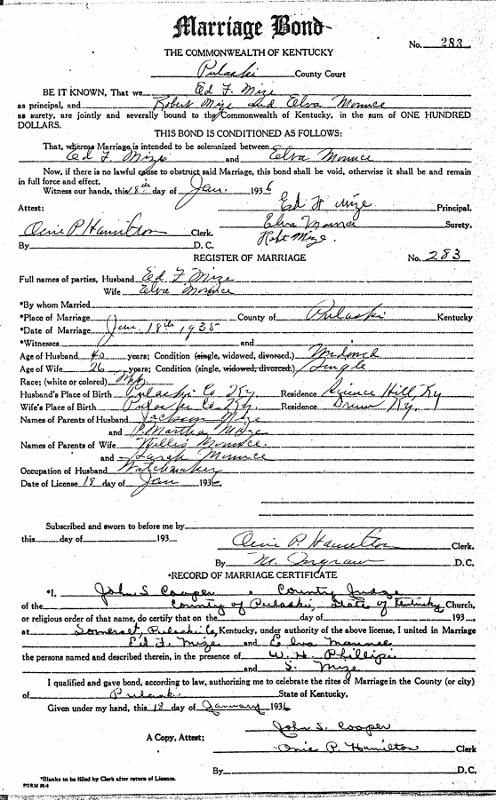 Marriage Bond
THE COMMONWEALTH OF KENTUCKY
No. 283
Pulaski County Court
BE IT KNOWN, That we Ed F. Mize
as principal, and Robert Mize and Elva Mounce
as surety, are jointly and severally bound to the Commonwealth of Kentucky, in the sum of ONE HUNDRED
DOLLARS.
THIS BOND IS CONDITIONED AS FOLLOWS:
That, whereas Marriage is intended to be solemnized between
Ed F. Mize and Elva Mounce
Now, if there is no lawful cause to obstruct said Marriage, this bond shall be void, otherwise it shall be and remain
in full force and effect.
Witness our hands, this 18th day of Jan. 1936
Attest: Ed H Mize Principal.
Orie P. Hamilton Clerk. Elva Mounce Surety.
By D. C. Robt Mize.
REGISTER OF MARRIAGE No. 283
Full names of parties, Husband Ed F Mize
Wife Elva Mounce
*By whom Married
*Place of Marriage County of Pulaski Kentucky
*Date of Marriage Jan. 18th 1935
*Witnesses and
Age of Husband 40 years; Condition (single, widowed, divorced.) Widowed
Age of Wife 26 years; Condition (single, widowed, divorced.) Single
Race; (white or colored)
Husband's Place of Birth Pulaski Co Ky. Residence Science Hill, Ky
Wife's Place of Birth Pulaski Co. Ky. Residence Ky.
Names of Parents of Husband Jackson Mize
and Martha Mize
Names of Parents of Wife Willis Mounce.
and Sarah Mounce
Occupation of Husband Watchmaker
Date of License 18 day of Jan 1936
Subscribed and sworn to before me by
this day of 193 Orie P. Hamilton Clerk.
By M. Ingram D. C.
*RECORD OF MARRIAGE CERTIFICATE
*I, John S Cooper County Judge
of the County of Pulaski, State of Kentucky Church,
or religious order of that name, do certify that on the day of 193,
at Somerset, Pulaski Co, Kentucky, under authority of the above license, I united in Marriage
Ed F. Mize and Elva Mounce
the persons named and described therein, in the presence of W. H. Phillipi
and S. Mize
I qualified and gave bond, according to law, authorizing me to celebrate the rites of Marriage in the County (or city)
of Pulaski State of Kentucky.
Given under my hand, this 18 day of January 1936
John S. Cooper
A Copy, Attest: Orie P. Hamilton Clerk
By D. C.
*Blanks to be filled by Clerk after return of License.